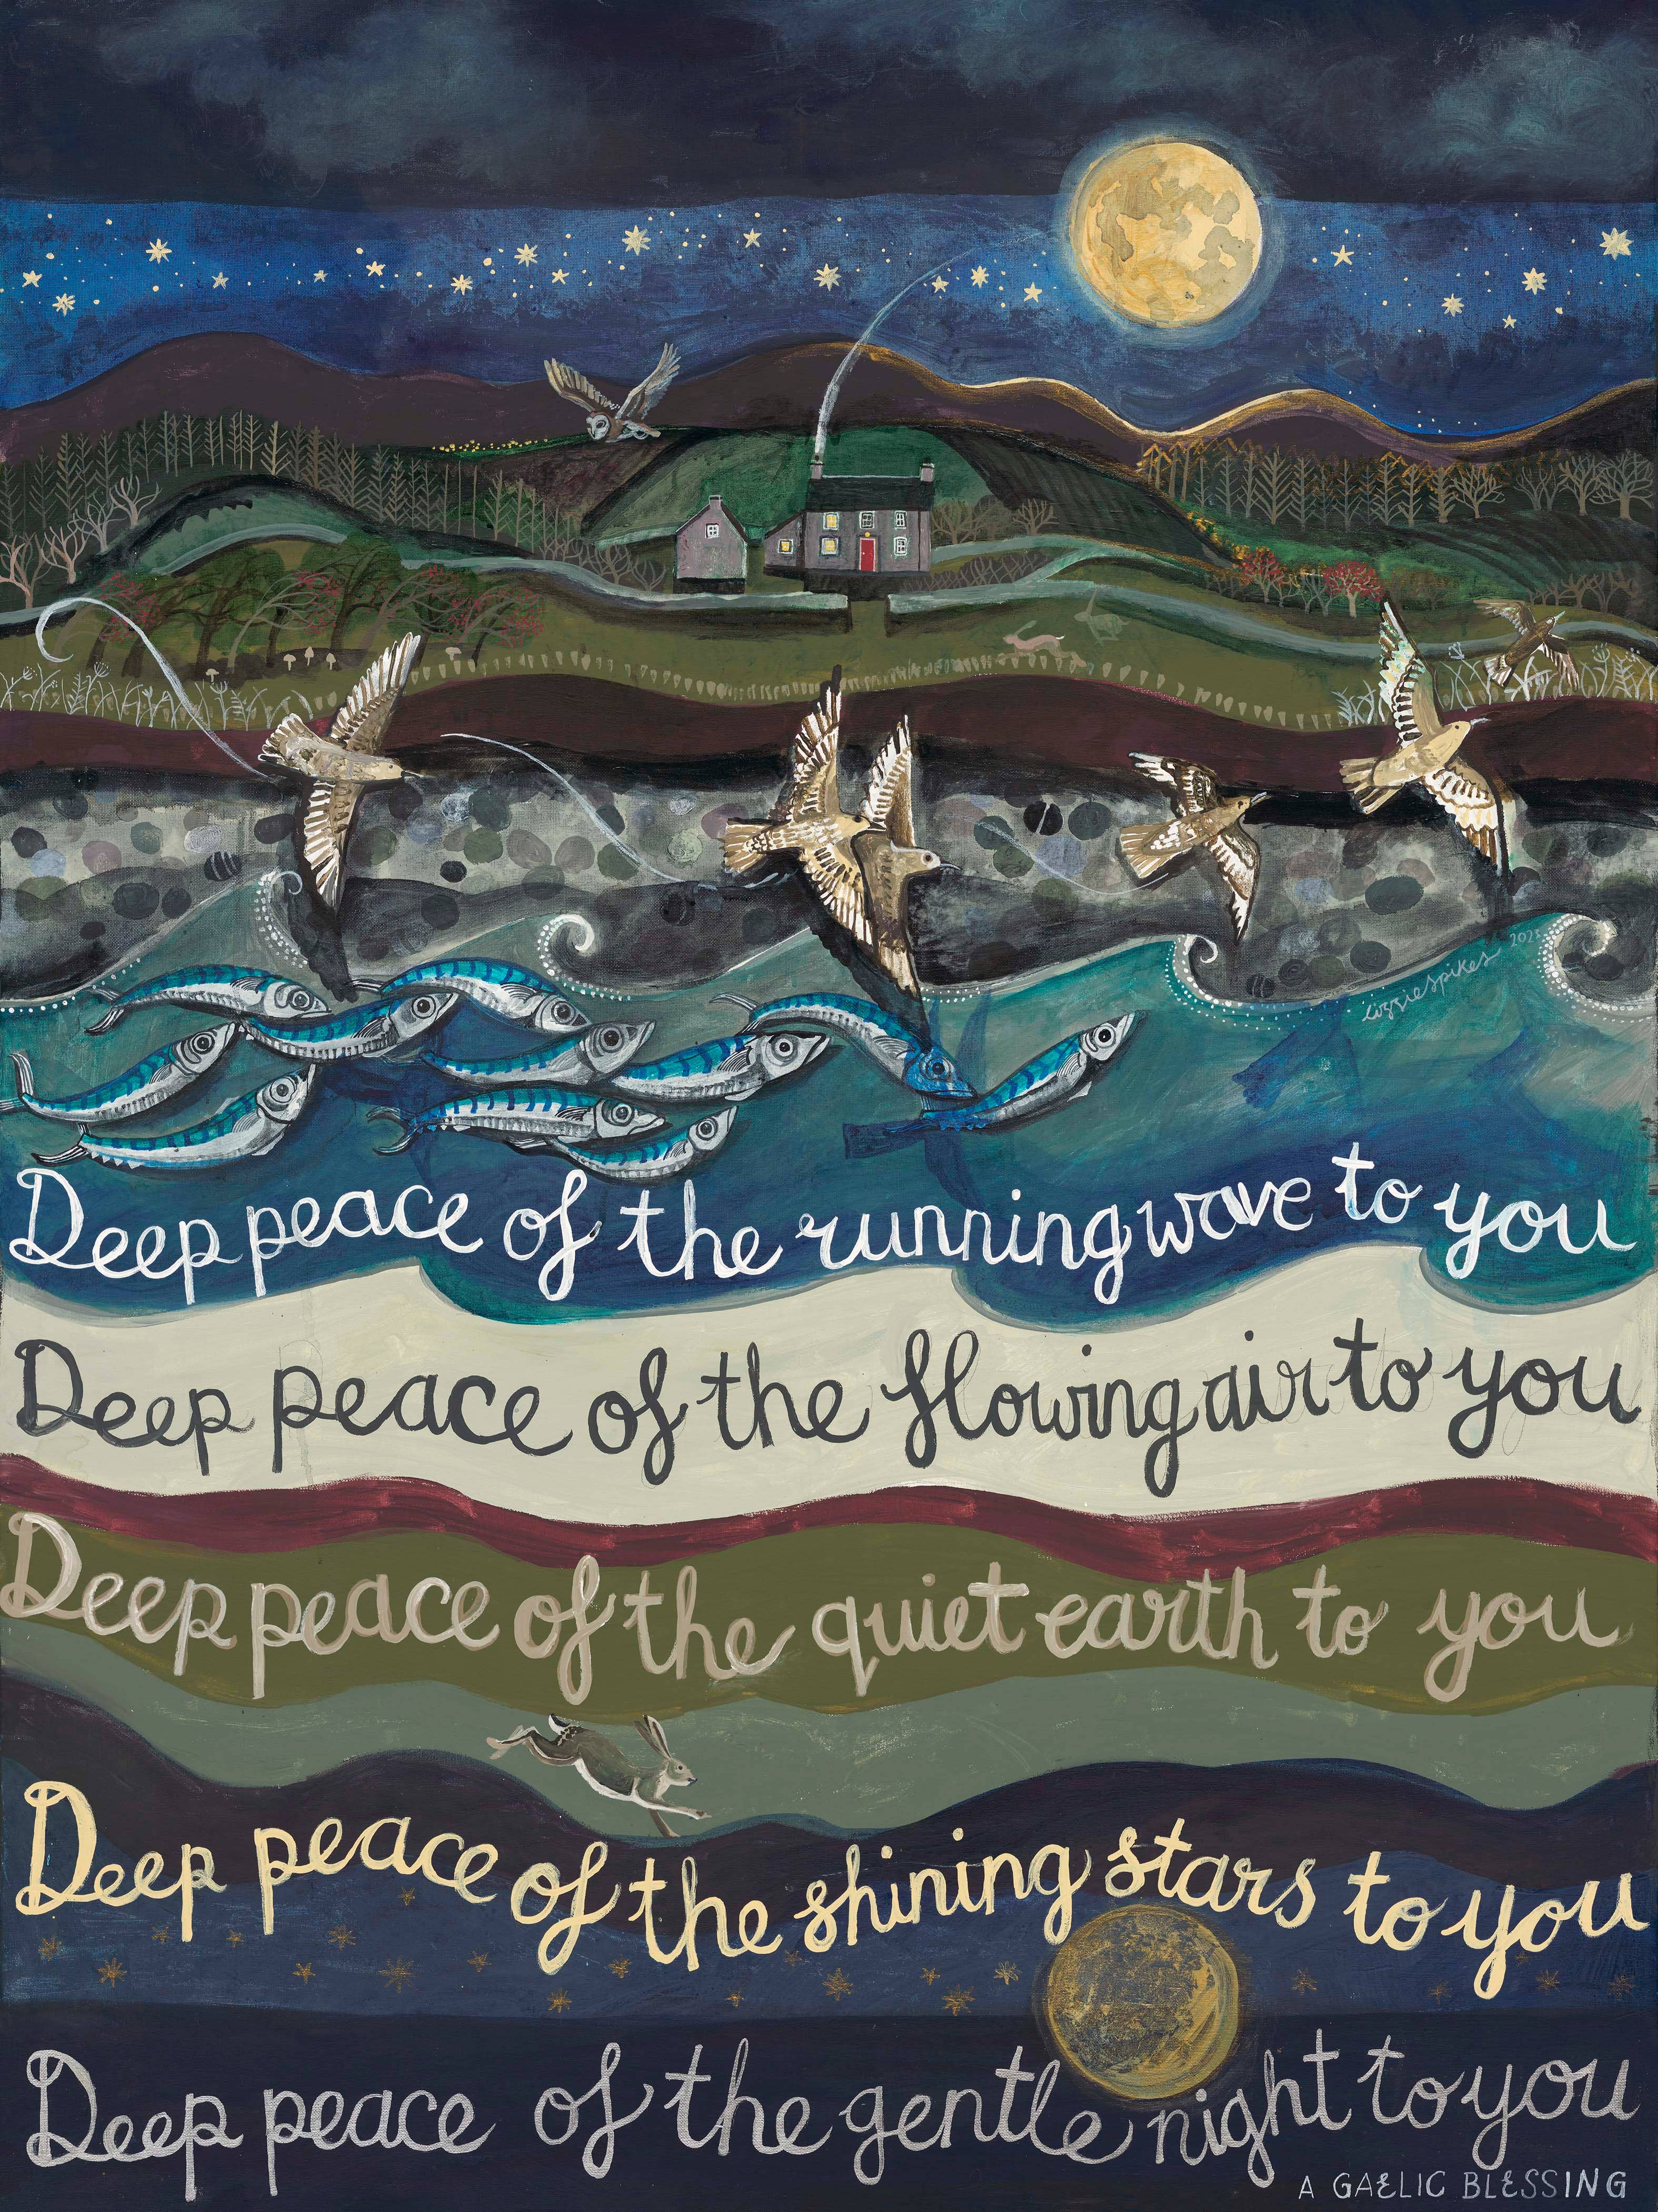 lizziespikes 2023
Deep peace of the running wave to you
Deep peace of the flowing air to you
Deep peace of the quiet earth to you
Deep peace of the shining stars to you
Deep peace of the gentle night to you
A GAELIC BLESSING